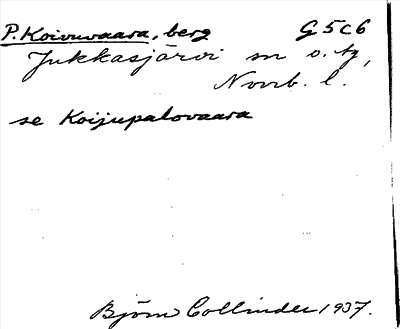 P. Koivuvaara, berg G 5 c 6
Jukkasjärvi sn o. tg,
Norrb. l.
se Koijupalovaara
Björn Collinder 1937.